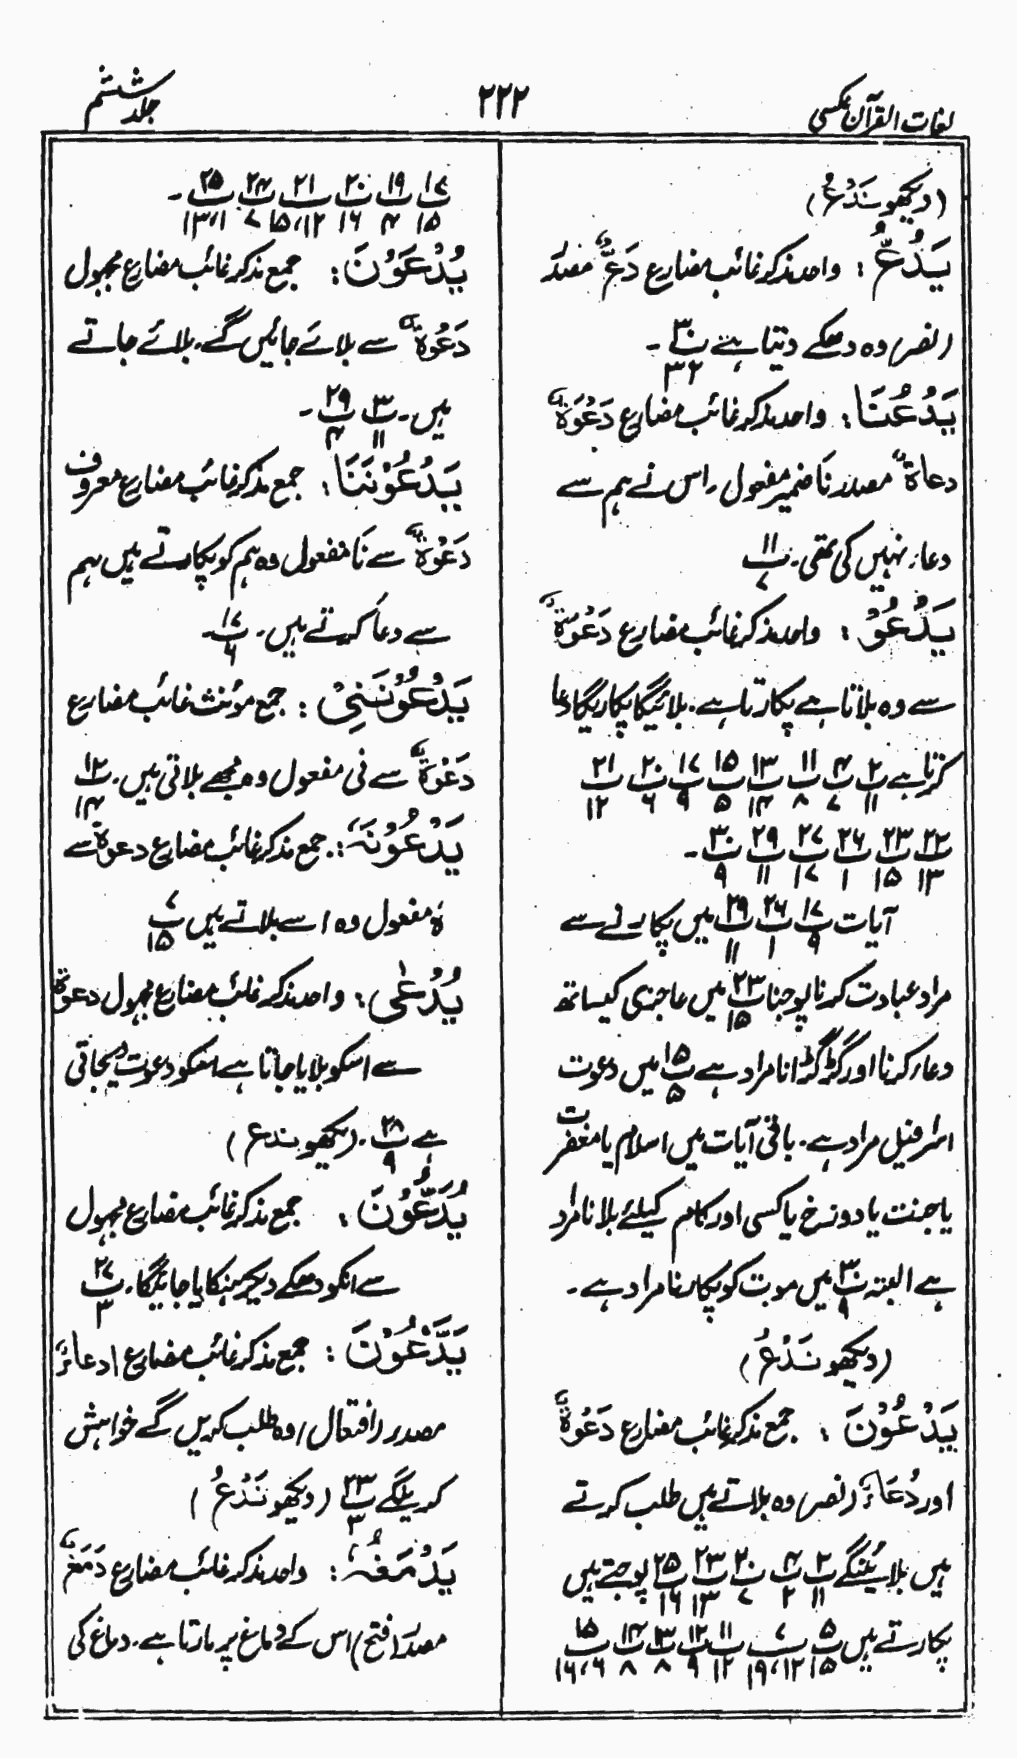 لغات القرآن عکسی
۲۲۲
جلد ششم
(دیکھو نَدْعُ)
یَدُعُّ : واحد مذکر غائب مضارع دَعٌّ مصدر
(نصر) وہ دھکے دیتا ہے پ۳۰ ۳۲ ۔
یَدْعُنَا : واحد مذکر غائب مضارع دَعْوَۃٌ
دعاۃٌ مصدر نَا ضمیر مفعول ۔ اس نے ہم سے
دعاء نہیں کی تھی۔ پ۱۱ ۷
یَدْعُوْ : واحد مذکر غائب مضارع دَعْوَۃٌ
سے وہ بلاتا ہے پکارتا ہے۔ بلائیگا پکاریگا دعا
کرتا ہے پ۲ ۱۱ پ۴ ۷ پ۱۱ ۸ پ۱۳ ۱۴ پ۱۵ ۵ پ۱۷ ۹ پ۲۰ ۶ پ۲۱ ۱۲
پ۲۲ ۱۳ پ۲۳ ۱۵ پ۲۶ ۱ پ۲۷ ۱۷ پ۲۹ ۱۱ پ۳۰ ۹ ۔
آیات پ۱۷ ۹ پ۲۶ ۱ پ۲۹ ۱۱ میں پکارنے سے
مراد عبادت کرنا پوجنا پ۲۳ ۱۵ میں عاجزی کیساتھ
دعاء کرنا اور گڑگڑانا مراد ہے پ۱۵ ۵ میں دعوت
اسرافیل مراد ہے۔ باقی آیات میں اسلام یا مغفرت
یا جنت یا دوزخ یا کسی اور کام کیلئے بلانا مراد
ہے البتہ پ۳۰ ۹ میں موت کو پکارنا مراد ہے۔
(دیکھو نَدْعُ)
یَدْعُوْنَ : جمع مذکر غائب مضارع دَعْوَۃٌ
اور دُعَاءٌ (نصر) وہ بلاتے ہیں طلب کرتے
ہیں بلائینگے پ۲ ۱۱ پ۴ ۲ پ۲۰ ۷ پ۲۳ ۱۳ پ۲۵ ۱۶ پوجتے ہیں
پکارتے ہیں پ۵ ۱۵ پ۷ ۱۲،۱۹ پ۱۱ ۱۲ پ۱۲ ۹ پ۱۳ ۸ پ۱۴ ۸ پ۱۵ ۶،۱۶
پ۱۷ ۱۵ پ۱۹ ۴ پ۲۰ ۱۶ پ۲۱ ۱۲،۱۵ پ۲۴ ۷ پ۲۵ ۱،۱۳ ۔
یُدْعَوْنَ : جمع مذکر غائب مضارع مجہول
دَعْوَۃٌ سے بلائے جائیں گے۔ بلائے جاتے
ہیں۔ پ۳ ۱۱ پ۲۹ ۴ ۔
یَدْعُوْنَنَا : جمع مذکر غائب مضارع معروف
دَعْوَۃٌ سے نَا مفعول وہ ہم کو پکارتے ہیں ہم
سے دعا کرتے ہیں۔ پ۱۷ ۶ ۔
یَدْعُوْنَنِیْ : جمع مؤنث غائب مضارع
دَعْوَۃٌ سے نی مفعول وہ مجھے بلاتی ہیں۔ پ۱۲ ۱۴
یَدْعُوْنَہٗ : جمع مذکر غائب مضارع دعوۃ سے
ہٗ مفعول وہ اسے بلاتے ہیں پ۷ ۱۵
یُدْعٰی : واحد مذکر غائب مضارع مجہول دعوۃ
سے اسکو بلایا جاتا ہے اسکو دعوت دیجاتی
ہے پ۲۸ ۹ ۔ (دیکھو ندع)
یُدَعُّوْنَ : جمع مذکر غائب مضارع مجہول
سے انکو دھکے دیکر ہنکایا جائیگا۔ پ۲۷ ۳
یَدَّعُوْنَ : جمع مذکر غائب مضارع ادعاءٌ
مصدر (افتعال) وہ طلب کریں گے خواہش
کرینگے پ۲۳ ۳ (دیکھو نَدْعُ)
یَدْمَغُہٗ : واحد مذکر غائب مضارع دَمْغٌ
مصدر (فتح) اس کے دماغ پر مارتا ہے۔ دماغ کی